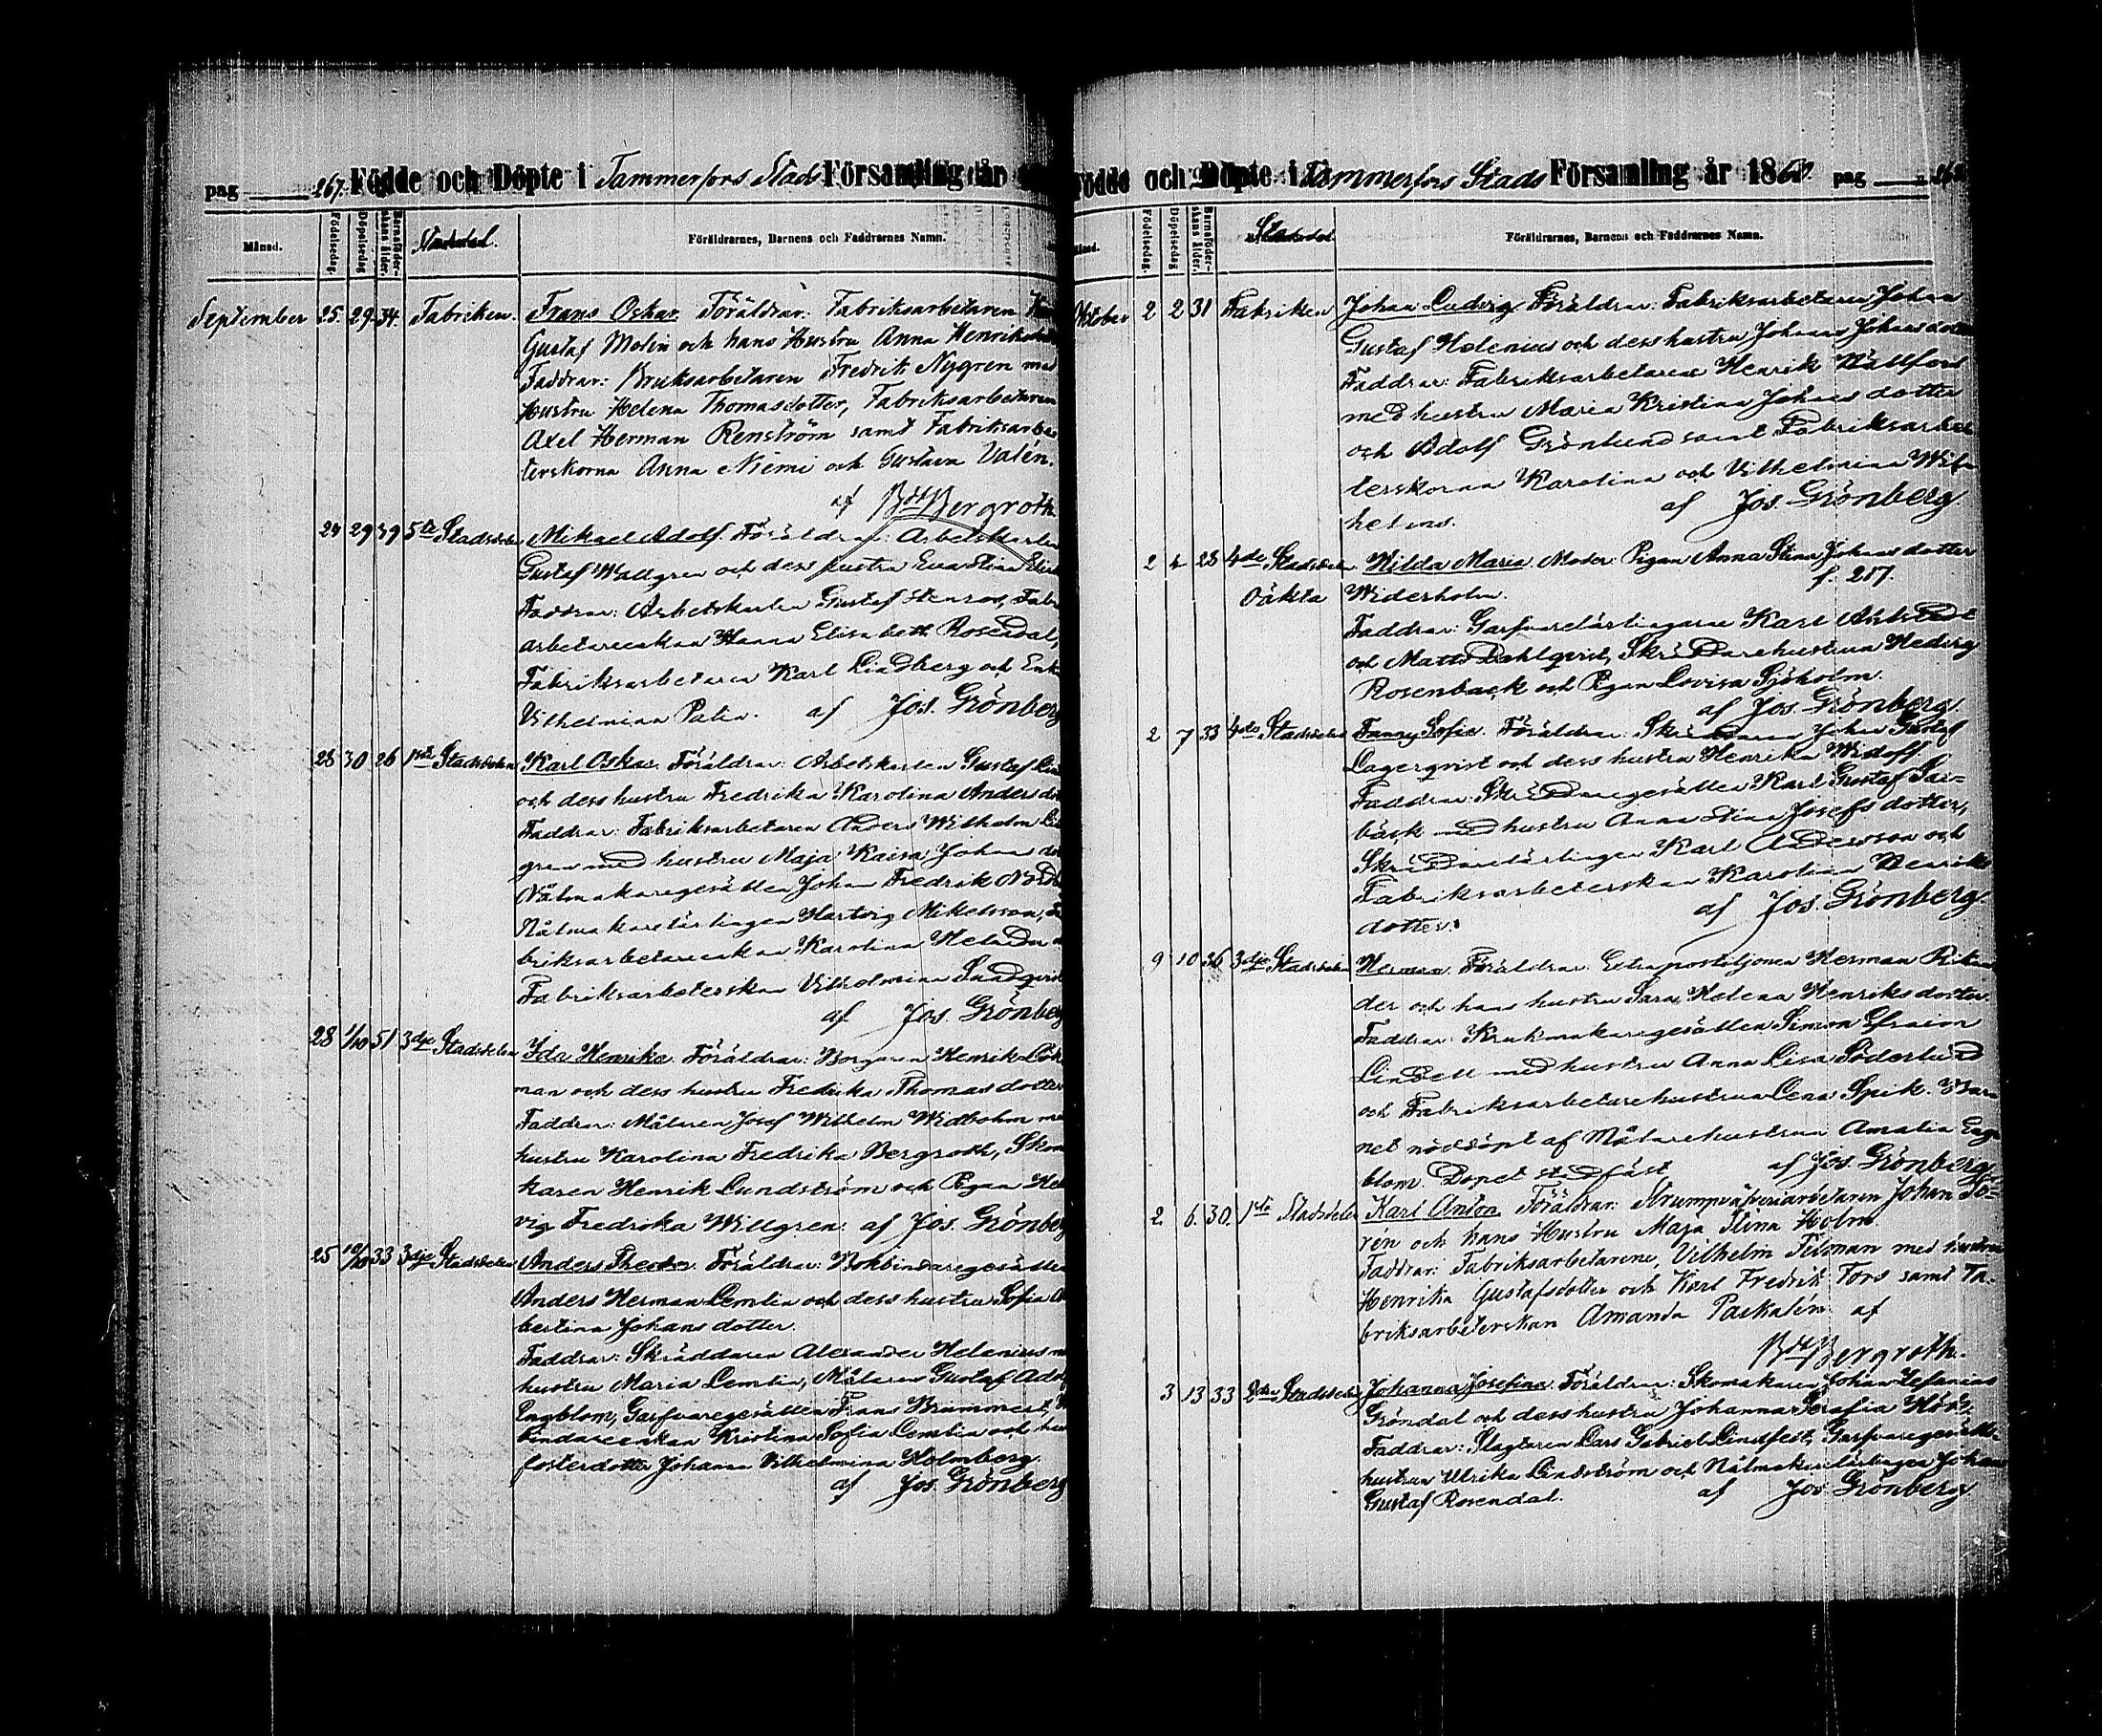 pag 267. Födde och Döpte i Tammerfors Stads Församling år
Månad. Födelsedag. Döpelsedag Barnaföderskans ålder. Stadsdel. Föräldrarnes, Barnens och Faddrarnes Namn.
September 25. 29. 34. Fabriken. Frans Oskar. Föräldrar: Fabriksarbetaren
Gustaf Molin och hans Hustru Anna Henriksdotter
Faddrar: Bruksarbetaren Fredrik Nygren med
Hustru Helena Thomasdotter, Fabriksarbetaren
Axel Herman Renström samt Fabriksarbe
terskorna Anna Niemi och Gustava Valén.
af Bergroth
24 29 39 5te Stadsdelen Mikael Adolf. Föräldrar: Arbetskarlen
Gustaf Wallgren och dess hustru Eva Stina
Faddrar: Arbetskarlen Gustaf Stenroos, Fabr
arbetareenkan Hanna Elisabeth Rosendal,
Fabriksarbetaren Karl Lindberg och Enk
Vilhelmina Palin. af Jos. Grönberg
28 30 26 1sta Stadsdelen Karl Oskar. Föräldrar: Arbetskarlen Gustaf
och dess hustru Fredrika Karolina Anders
Faddrar: Fabriksarbetaren Anders Wilhelm
gren med hustru Maja Kaisa Johans
Nålmakaregesällen Johan Fredrik
Nålmakarelärlingen Hartvig Mikelsson, Fa
briksarbetareenkan Karolina Helander
Fabriksarbeterskan Vilhelmina Sundqvist
af Jos. Grönberg
28 1/10 51 3dje Stadsdelen Ida Henrika. Föräldrar: Borgaren Henrik
man och dess hustru Fredrika Thomasdotter
Faddrar: Målaren Josef Wilhelm Widbohm med
hustru Karolina Fredrika Bergroth, Skoma
karen Henrik Lundström och Pigan Hed
vig Fredrika Willgren. af Jos. Grönberg
25 10/10 33 3dje Stadsdelen Anders Theodor. Föräldrar: Bokbindaregesällen
Anders Herman Lemlin och dess hustru Sofia
bertina Johansdotter.
Faddrar: Skräddaren Alexander Helenius m
hustru Maria Lemlin, Målaren Gustaf Adolf
Engblom, Garfvaregesällen Frans Brummert,
bindareenkan Kristina Sofia Lemlin och
fosterdotter Johanna Vilhelmina Holmberg.
af Jos. Grönberg
Födde och Döpte i Tammerfors Stads Församling år 18 pag 268
Månad. Födelsedag. Döpelsedag Barnaföderskans ålder. Stadsdel. Föräldrarnes, Barnens och Faddrarnes Namn.
Oktober 2 2 31 Fabriken Johan Ludvig. Föräldrar: Fabriksarbetaren Johan
Gustaf Helenius och dess hustru Johanna Johansdotter
Faddrar: Fabriksarbetarene Henrik Nällfors
med hustru Maria Kristina Johansdotter
och Adolf Grönlund samt Fabriksarbe
terskorna Karolina och Vilhelmina Wil
helms. af Jos. Grönberg.
2 4 28 4de Stadsdelen Hilda Maria. Moder: Pigan Anna Stina Johansdotter
Oäkta Widerholm. f. 217.
Faddrar: Garfvarelärlingarne Karl Ahlstedt
och Matts Dahlqvist, Skräddarehustrun Hedvig
Rosenback och Pigan Lovisa Sjöholm.
af Jos. Grönberg.
2 7 33 4de Stadsdelen Fanny Sofia. Föräldrar: Skräddaren Johan Gustaf
Lagerqvist och dess hustru Henrika Widoff
Faddrar: Skräddaregesällen Karl Gustaf
bäck med hustru Anna Stina Josefsdotter,
Skräddarelärlingen Karl Andersson och
Fabriksarbeterskan Karolina Henriks
dotter. af Jos. Grönberg.
9 10 36 3dje Stadsdelen Herman. Föräldrar: Extrapostiljonen Herman
der och hans hustru Sara Helena Henriksdotter.
Faddrar: Krukmakaregesällen Simon Efraim
Lindell med hustru Anna Lisa Söderlund
och Fabriksarbetarehustrun Lena Spik. Bar
net nöddöpt af Målarehustrun Amalia Eng
blom. Dopet stadfäst af Jos. Grönberg.
2 6. 30. 1sta Stadsdelen Karl Anton. Föräldrar: Strumpväfveriarbetaren Johan To-
rén och hans Hustru Maja Stina Holm.
Faddrar: Fabriksarbetarene, Vilhelm Tilman med hustru
Henrika Gustafsdotter och Karl Fredrik Fors samt Fa-
briksarbeterskan Amanda Parkalén. af
Bergroth.
3 13 33 2dra Stadsdelen Johanna Josefina. Föräldrar: Skomakaren Johan Zefanias
Gröndal och dess hustru Johanna Serafia Höök.
Faddrar: Slagtaren Lars Gabriel Lindfelt, Garfvaregesälls-
hustrun Ulrika Lindström och Nålmakarelärlingen Johan
Gustaf Rosendal. af Jos Grönberg